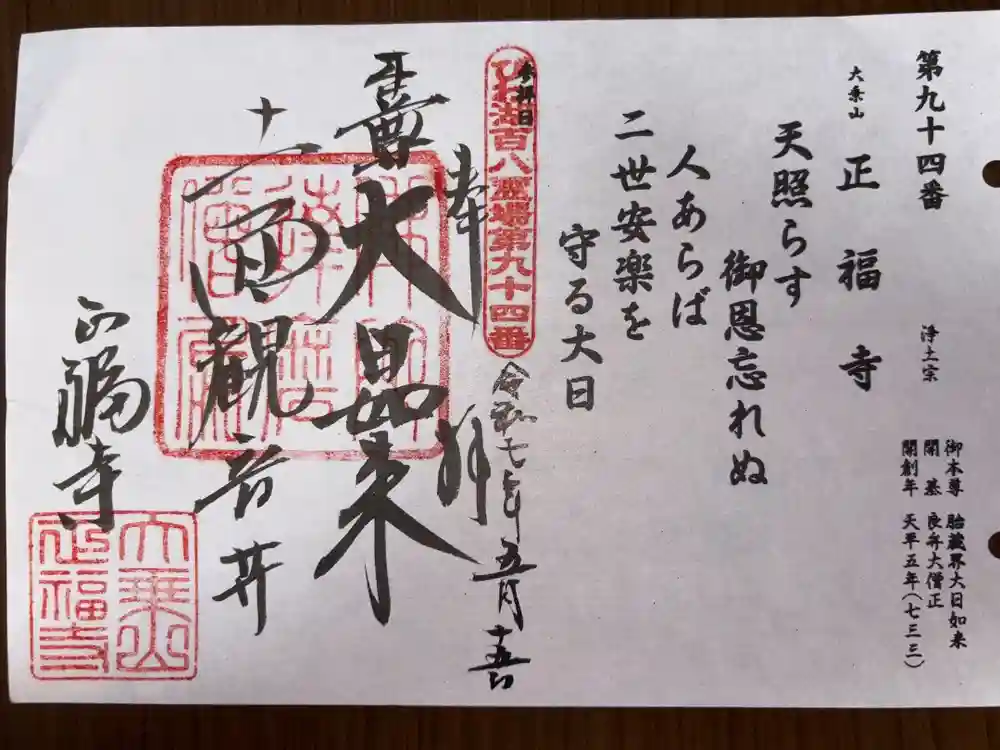 第九十四番
浄土宗
御本尊 胎蔵界大日如来
開基 良弁大僧正
開創年 天平五年(七三三)
大乗山
正福寺
天照らす
御恩忘れぬ
人あらば
二世安楽を
守る大日
びわ湖百八霊場第九十四番
参拝日
令和七年五月十五日
奉拝
大日如来
十一面観音
正福寺
大乗山
正福寺